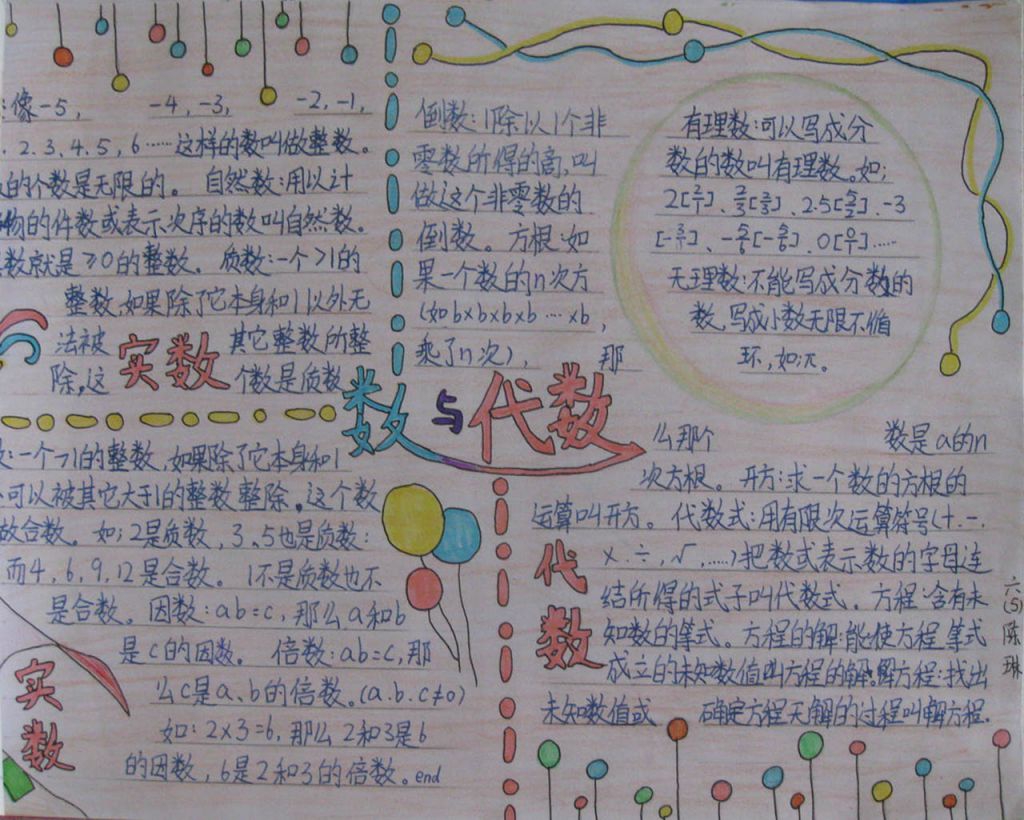 :像-5, -4,-3, -2,-1,
. 2.3,4.5,6……这样的数叫做整数。
的个数是无限的。 自然数:用以计
物的件数或表示次序的数叫自然数。
数就是≥0的整数。 质数:一个>1的
整数,如果除了它本身和1以外无
法被 其它整数所整
除,这 个数是质数
实数
:一个>1的整数,如果除了它本身和1
可以被其它大于1的整数整除,这个数
做合数。如:2是质数,3、5也是质数:
而4,6,9,12是合数。 1不是质数也不
是合数。 因数:ab=c,那么a和b
是c的因数。 倍数:ab=c,那
么c是a、b的倍数。(a.b.c≠0)
如:2×3=6,那么2和3是6
的因数,6是2和3的倍数。end
实数
数与代数
倒数:1除以1个非
零数所得的商,叫
做这个非零数的
倒数。方根:如
果一个数的n次方
(如b×b×b×b…×b,
乘了n次), 那
有理数:可以写成分
数的数叫有理数。如:
2[2/1]、2/3[2/3]、2.5[5/2]、-3
[-3/1]、-5/6[-5/6]、0[0/1]……
无理数:不能写成分数的
数,写成小数无限不循
环,如:π。
么那个 数是a的n
次方根。开方:求一个数的方根的
运算叫开方。代数式:用有限次运算符号(+.-.
×.÷,√,……)把数或表示数的字母连
结所得的式子叫代数式。方程:含有未
知数的等式。方程的解:能使方程等式
成立的未知数值叫方程的解。解方程:找出
未知数值或 确定方程无解的过程叫解方程.
代数
六(5)陈琳